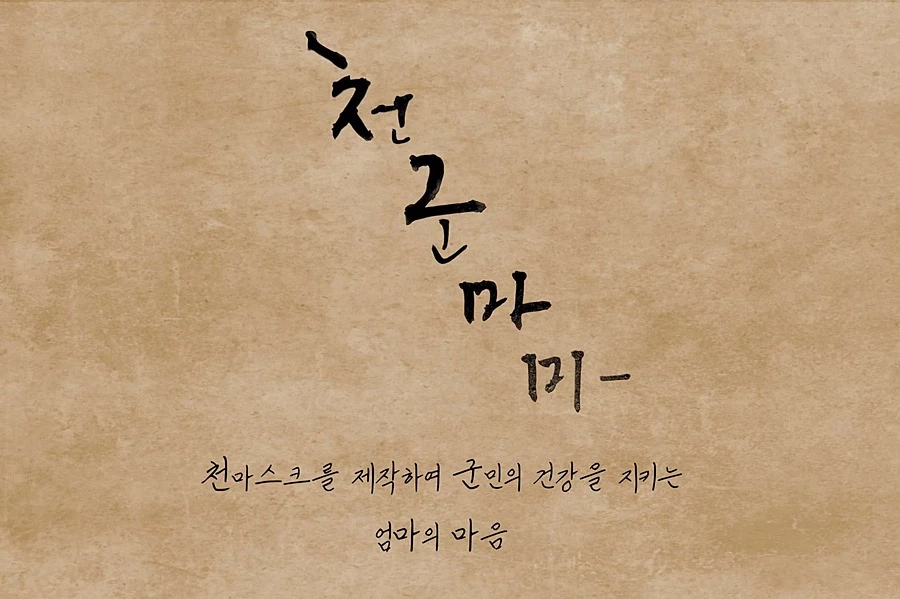 천
군
마
미-
천마스크를 제작하여 군민의 건강을 지키는
엄마의 마음